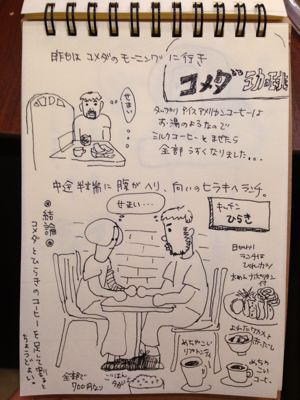 昨日は コメダのモーニングに行き
せまい
コメダ珈琲
たっぷりアイスアメリカンコーヒーは
お湯のようなので
ミルクコーヒーとまぜたら
全部うすくなりました...
中途半端に腹がヘリ、向いのヒラキへランチ。
せまい...
キッチン
ひらき
日がわり
ランチは
ひれカツ!
太めんナポリタン
付
よわったワカメの
赤だし
めちゃ
こいコーヒー
めちゃやこい
ごはん
少なめ
全部で
700円なり
◎結論◎
コメダとひらきのコーヒーを足して割ると
ちょうどよい。